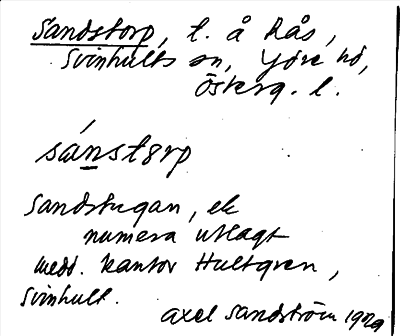 Sandstorp, t. å Rås,
Svinhults sn, Ydre hd,
Österg. l.
sánstorp
Sandstugan, ek
numera utlagt
medd. kantor Hultgren,
Svinhult.
Axel Sandström 1929